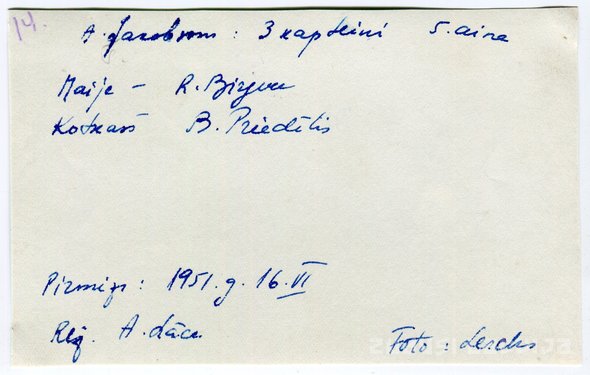 14.
A. Jacobsons : 3 kapteini 5. aina
Maije - R. Birgere
Kotkass B. Priedītis
Pirmizr : 1951. g. 16. VI
Rež. A. Lāce
Foto :